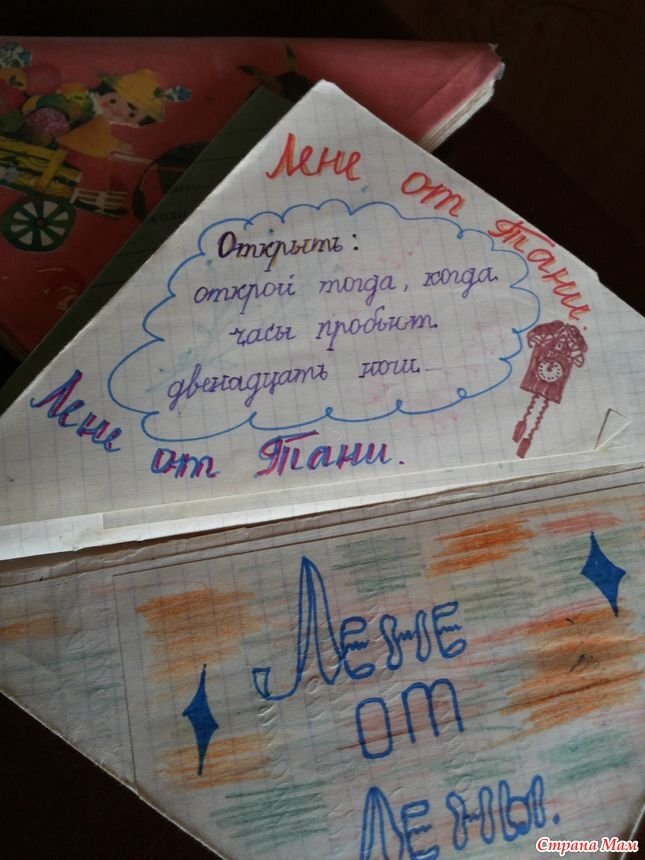 Лене от Тани.
Открыть:
открой тогда, когда
часы пробьют
двенадцать ночи...
Лене от Тани.
Лене
от
Лены.
Страна Мам